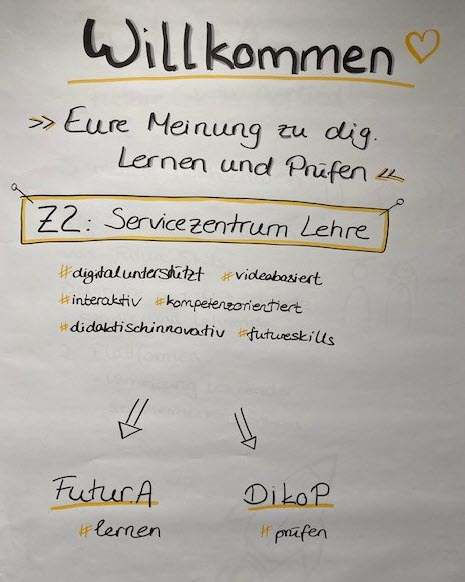 Willkommen
>> Eure Meinung zu dig.
Lernen und Prüfen <<
Z2: Servicezentrum Lehre
#digitalunterstützt #videobasiert
#interaktiv #kompetenzorientiert
#didaktischinnovativ #futureskills
Futur.A DikoP
#lernen #prüfen